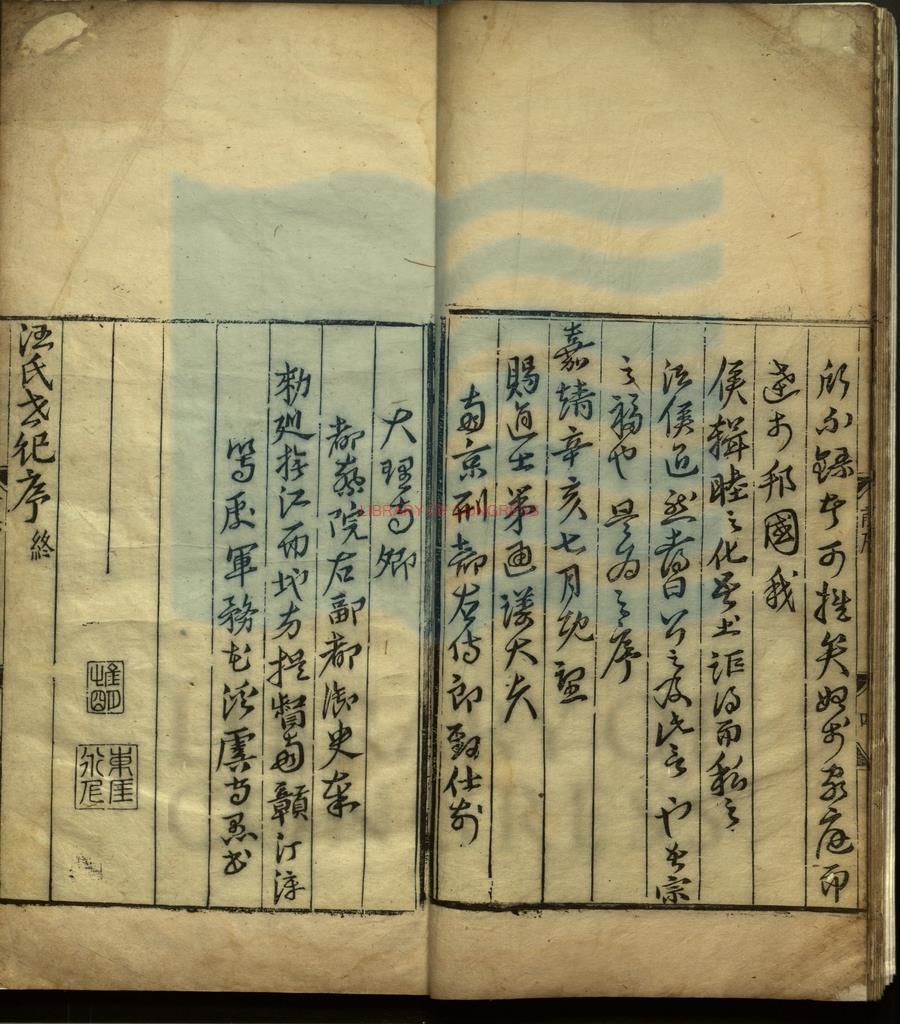 所不錄者可推矣始於家庭而
達於邦國我
侯輯睦之化吾土詎得而私之
汪侯迥然曰公之及此言也吾宗
之福也是為之序
嘉靖辛亥七月既望
賜進士第通議大夫
南京刑部右侍郎致仕前
大理寺卿
都察院右副都御史奉
勑廵撫江西地方提督南贛汀漳
等處軍務花溪虞守愚書
惟明
汪氏世紀序終
LIBRARY OF CONGRESS